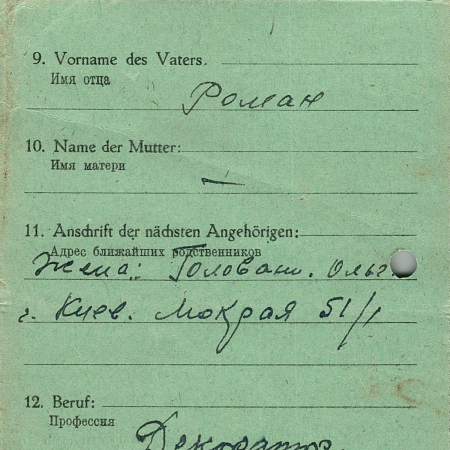 9. Vorname des Vaters.
Имя отца
Роман
10. Name der Mutter:
Имя матери
—
11. Anschrift der nächsten Angehörigen:
Адрес ближайших родственников
Жена: Головаш. Ольга
г. Киев. Мокрая 51/1
12. Beruf:
Профессия
Декоратор.